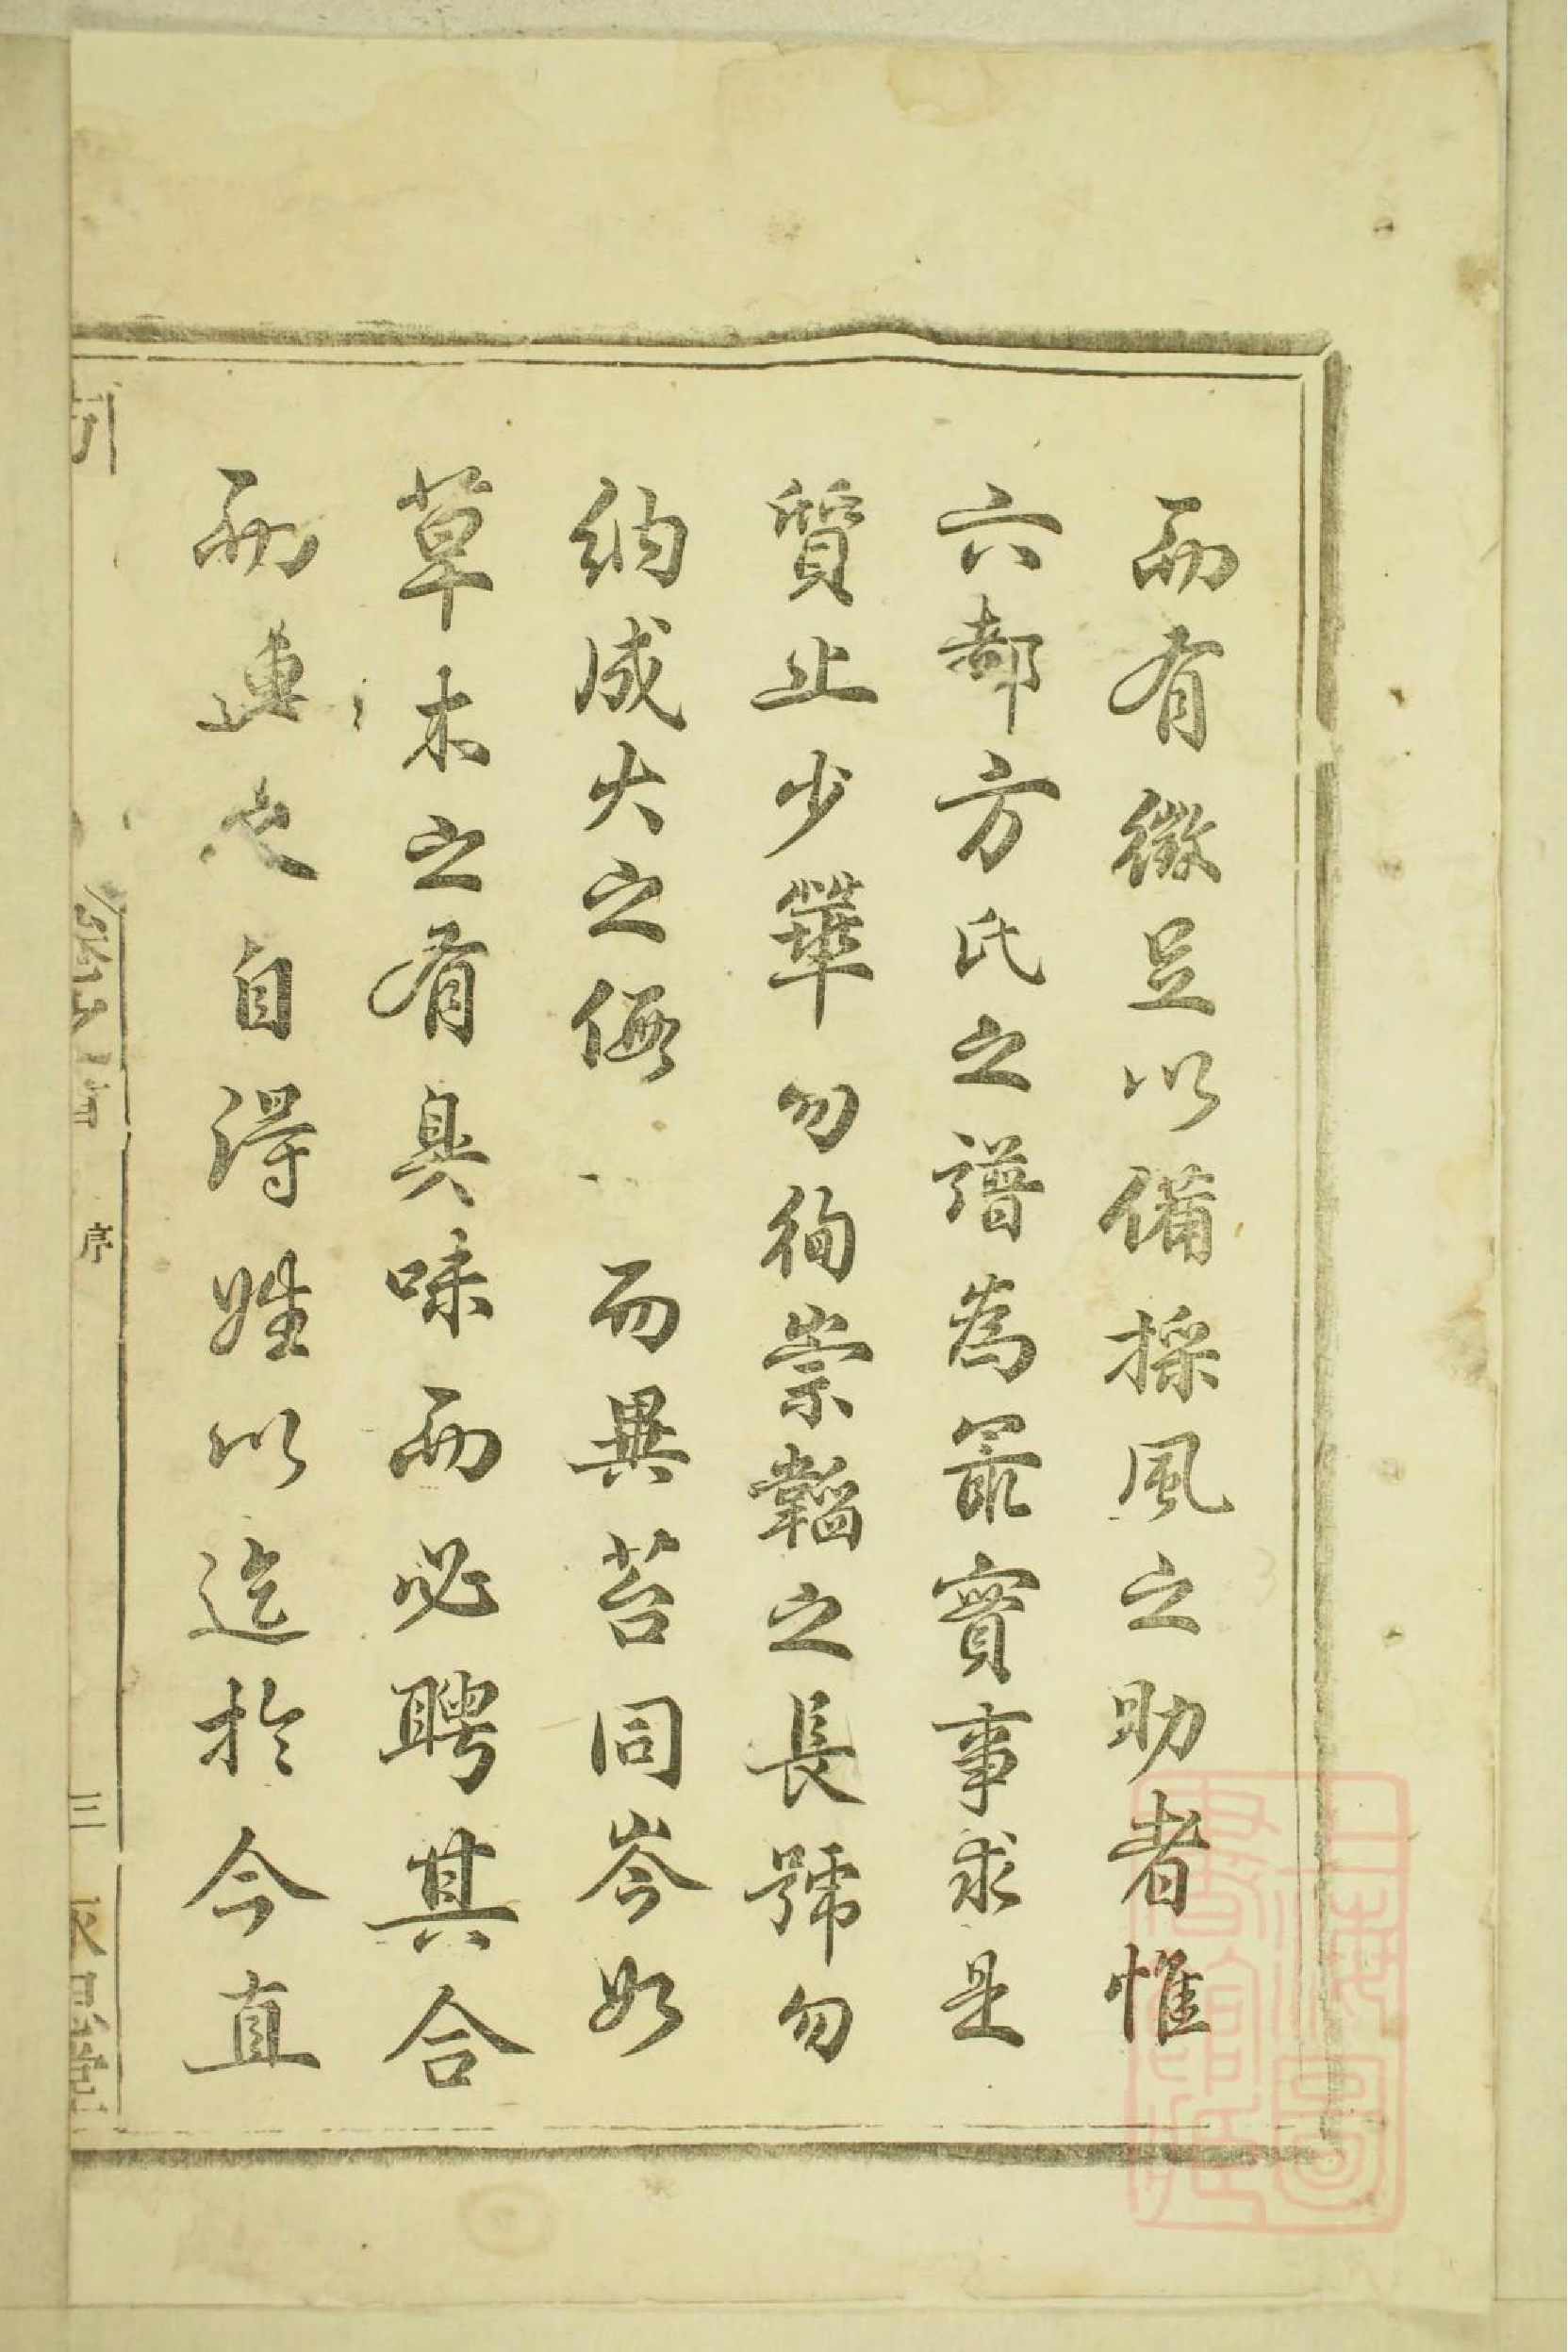 而有徵足以備採風之助者惟
六都方氏之譜為最實事求是
質止少華勿徇崇韜之長號勿
納成大之
而異苔同岑如
草木之有臭味而必聘其合
而連之自得姓以迄於今直
序
三
上海圖書館藏